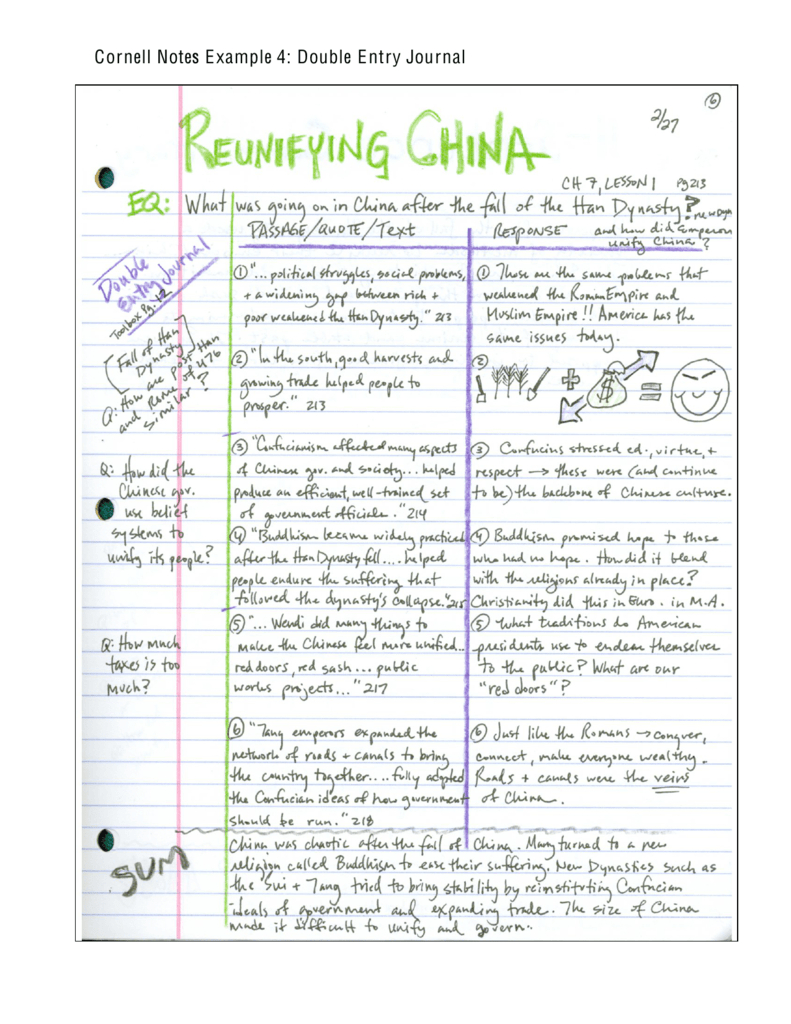 Cornell Notes Example 4: Double Entry Journal
6
2/27
REUNIFYING CHINA
CH 7, LESSON 1 pg 213
EQ: What was going on in China after the fall of the Han Dynasty? new Dyn
and how did Emperors
unify China?
PASSAGE/QUOTE/Text
RESPONSE
Double
Entry Journal
Toolbox Pg. 12
[Fall of Han
Dynasty]
Q: How are post Han
and Rome of 476
similar?
① "... political struggles, social problems,
+ a widening gap between rich +
poor weakened the Han Dynasty." 213
① These are the same problems that
weakened the Roman Empire and
Muslim Empire!! America has the
same issues today.
② "In the south, good harvests and
growing trade helped people to
prosper." 213
②
+ $ =
Q: How did the
Chinese gov.
use belief
systems to
unify its people?
③ "Confucianism affected many aspects
of Chinese gov. and society... helped
produce an efficient, well-trained set
of government officials." 214
③ Confucius stressed ed., virtue, +
respect → these were (and continue
to be) the backbone of Chinese culture.
④ "Buddhism became widely practiced
after the Han Dynasty fell.... helped
people endure the suffering that
followed the dynasty's collapse." 215
④ Buddhism promised hope to those
who had no hope. How did it blend
with the religions already in place?
Christianity did this in Euro. in M.A.
Q: How much
taxes is too
much?
⑤ "... Wendi did many things to
make the Chinese feel more unified..
red doors, red sash... public
works projects..." 217
⑤ What traditions do American
presidents use to endear themselves
to the public? What are our
"red doors"?
⑥ "Tang emperors expanded the
network of roads + canals to bring
the country together.... fully adopted
the Confucian ideas of how government
should be run." 218
⑥ Just like the Romans → conquer,
connect, make everyone wealthy.
Roads + canals were the veins
of China.
SUM
China was chaotic after the fall of China. Many turned to a new
religion called Buddhism to ease their suffering. New Dynasties such as
the Sui + Tang tried to bring stability by reinstituting Confucian
ideals of government and expanding trade. The size of China
made it difficult to unify and govern.